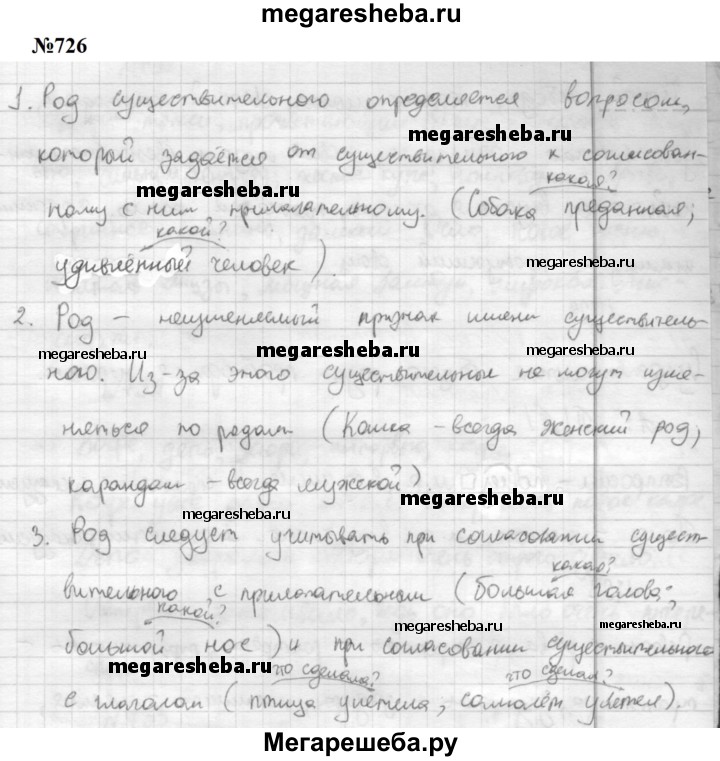 megaresheba.ru
№726
1. Род существительного определяется вопросом,
megaresheba.ru
который задаётся от существительного к согласован-
какая?
megaresheba.ru
ному с ним прилагательному. (Собака преданная;
какой?
удивлённый человек).
megaresheba.ru
2. Род – неизменяемый признак имени существитель-
megaresheba.ru megaresheba.ru megaresheba.ru
ного. Из-за этого существительные не могут изме-
няться по родам (Кошка – всегда женский род,
карандаш – всегда мужской).
megaresheba.ru
megaresheba.ru
3. Род следует учитывать при согласовании сущест-
какая?
вительного с прилагательным (большая голова;
какой?
megaresheba.ru
megaresheba.ru
большой нос) и при согласовании существительного
megaresheba.ru
что сделала? что сделал?
с глаголом (птица улетела, самолёт улетел).
megaresheba.ru
Мегарешеба.ру